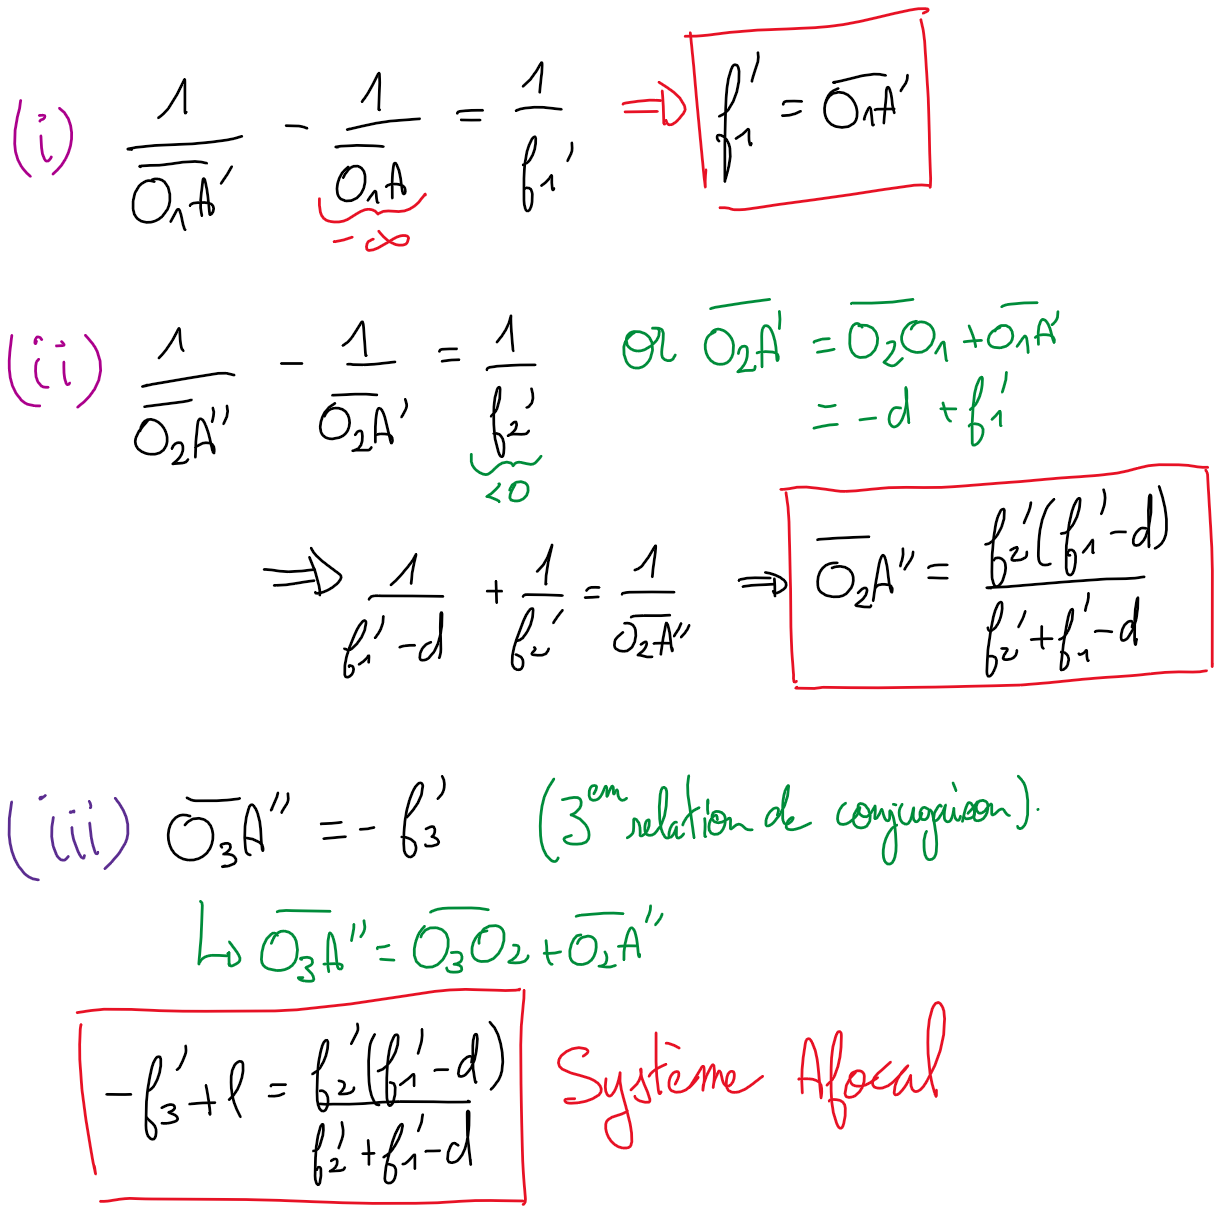 (i) 1/O̅₁A̅' - 1/O̅₁A̅ = 1/f₁' ⇒ f₁' = O̅₁A̅'
-∞
(ii) 1/O̅₂A̅'' - 1/O̅₂A̅' = 1/f₂' or O̅₂A̅' = O̅₂O̅₁ + O̅₁A̅'
<0
= -d + f₁'
⇒ 1/(f₁'-d) + 1/f₂' = 1/O̅₂A̅'' ⇒ O̅₂A̅'' = f₂'(f₁'-d)/(f₂'+f₁'-d)
(iii) O̅₃A̅'' = - f₃' (3em relation de conjugaison).
↳ O̅₃A̅'' = O̅₃O̅₂ + O̅₂A̅''
-f₃' + l = f₂'(f₁'-d)/(f₂'+f₁'-d) Système Afocal